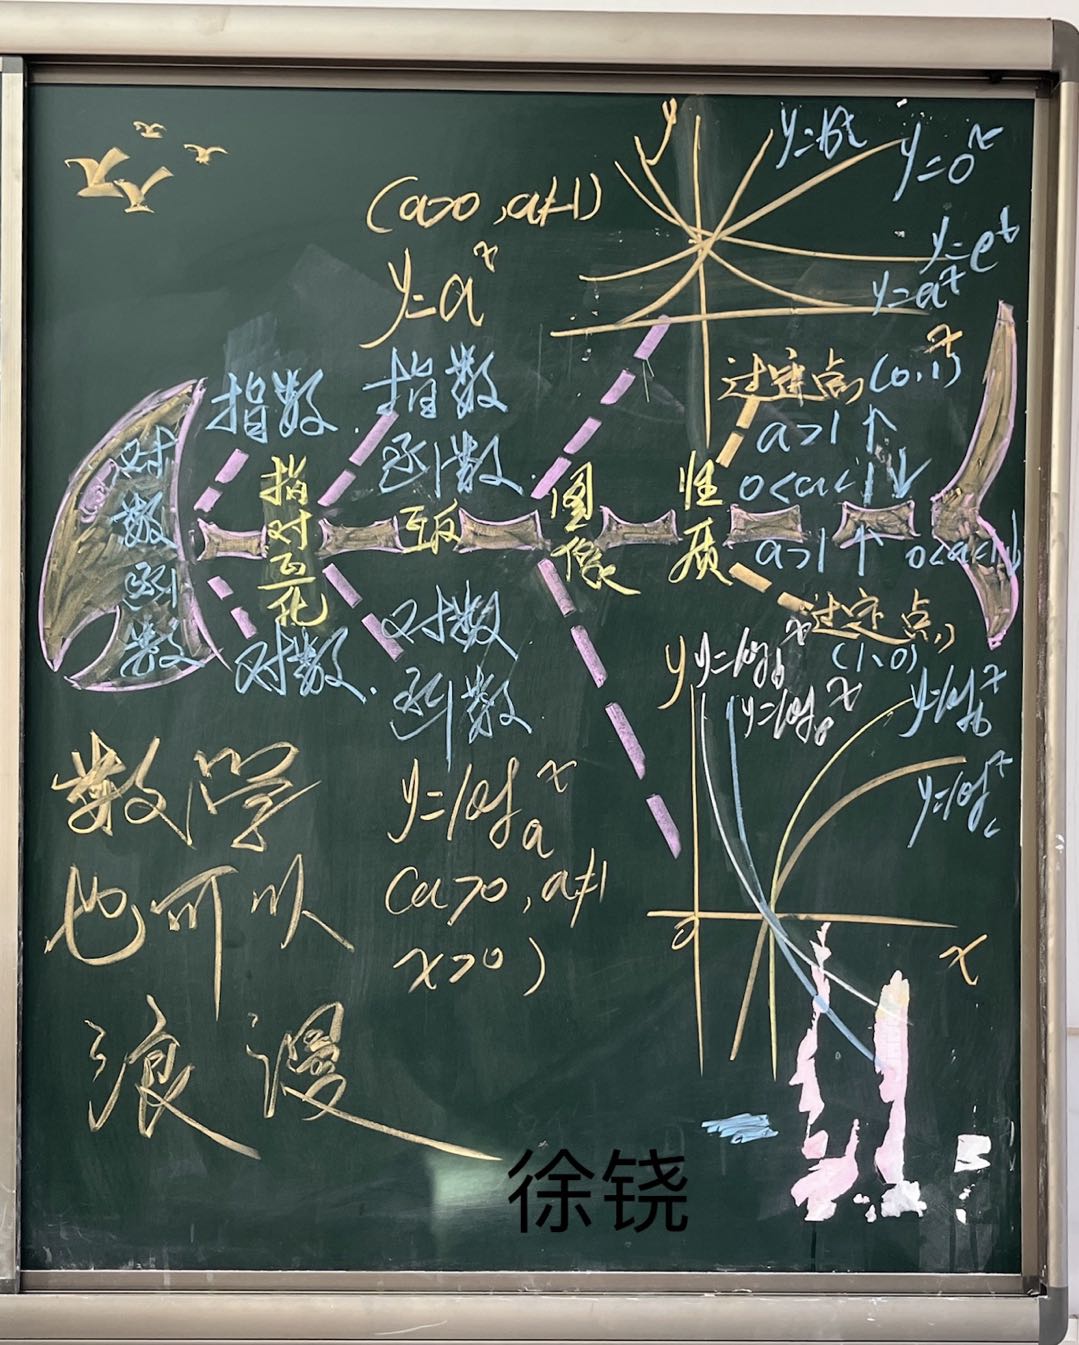 (a>0,a≠1)
y=aˣ
y
y=eᵗ
y=aˣ
过定点(0,1)
a>1↑
0<a<1↓
指数
指数
函数
对数函数
指对互化
互反
图像
性质
a>1↑
0<a<1↓
过定点
(1,0)
对数
对数
函数
y=logₐˣ
(a>0,a≠1
x>0)
y
y=log_bˣ
y=log_bˣ
y=log_cˣ
o
x
数学
也可以
浪漫
徐铙